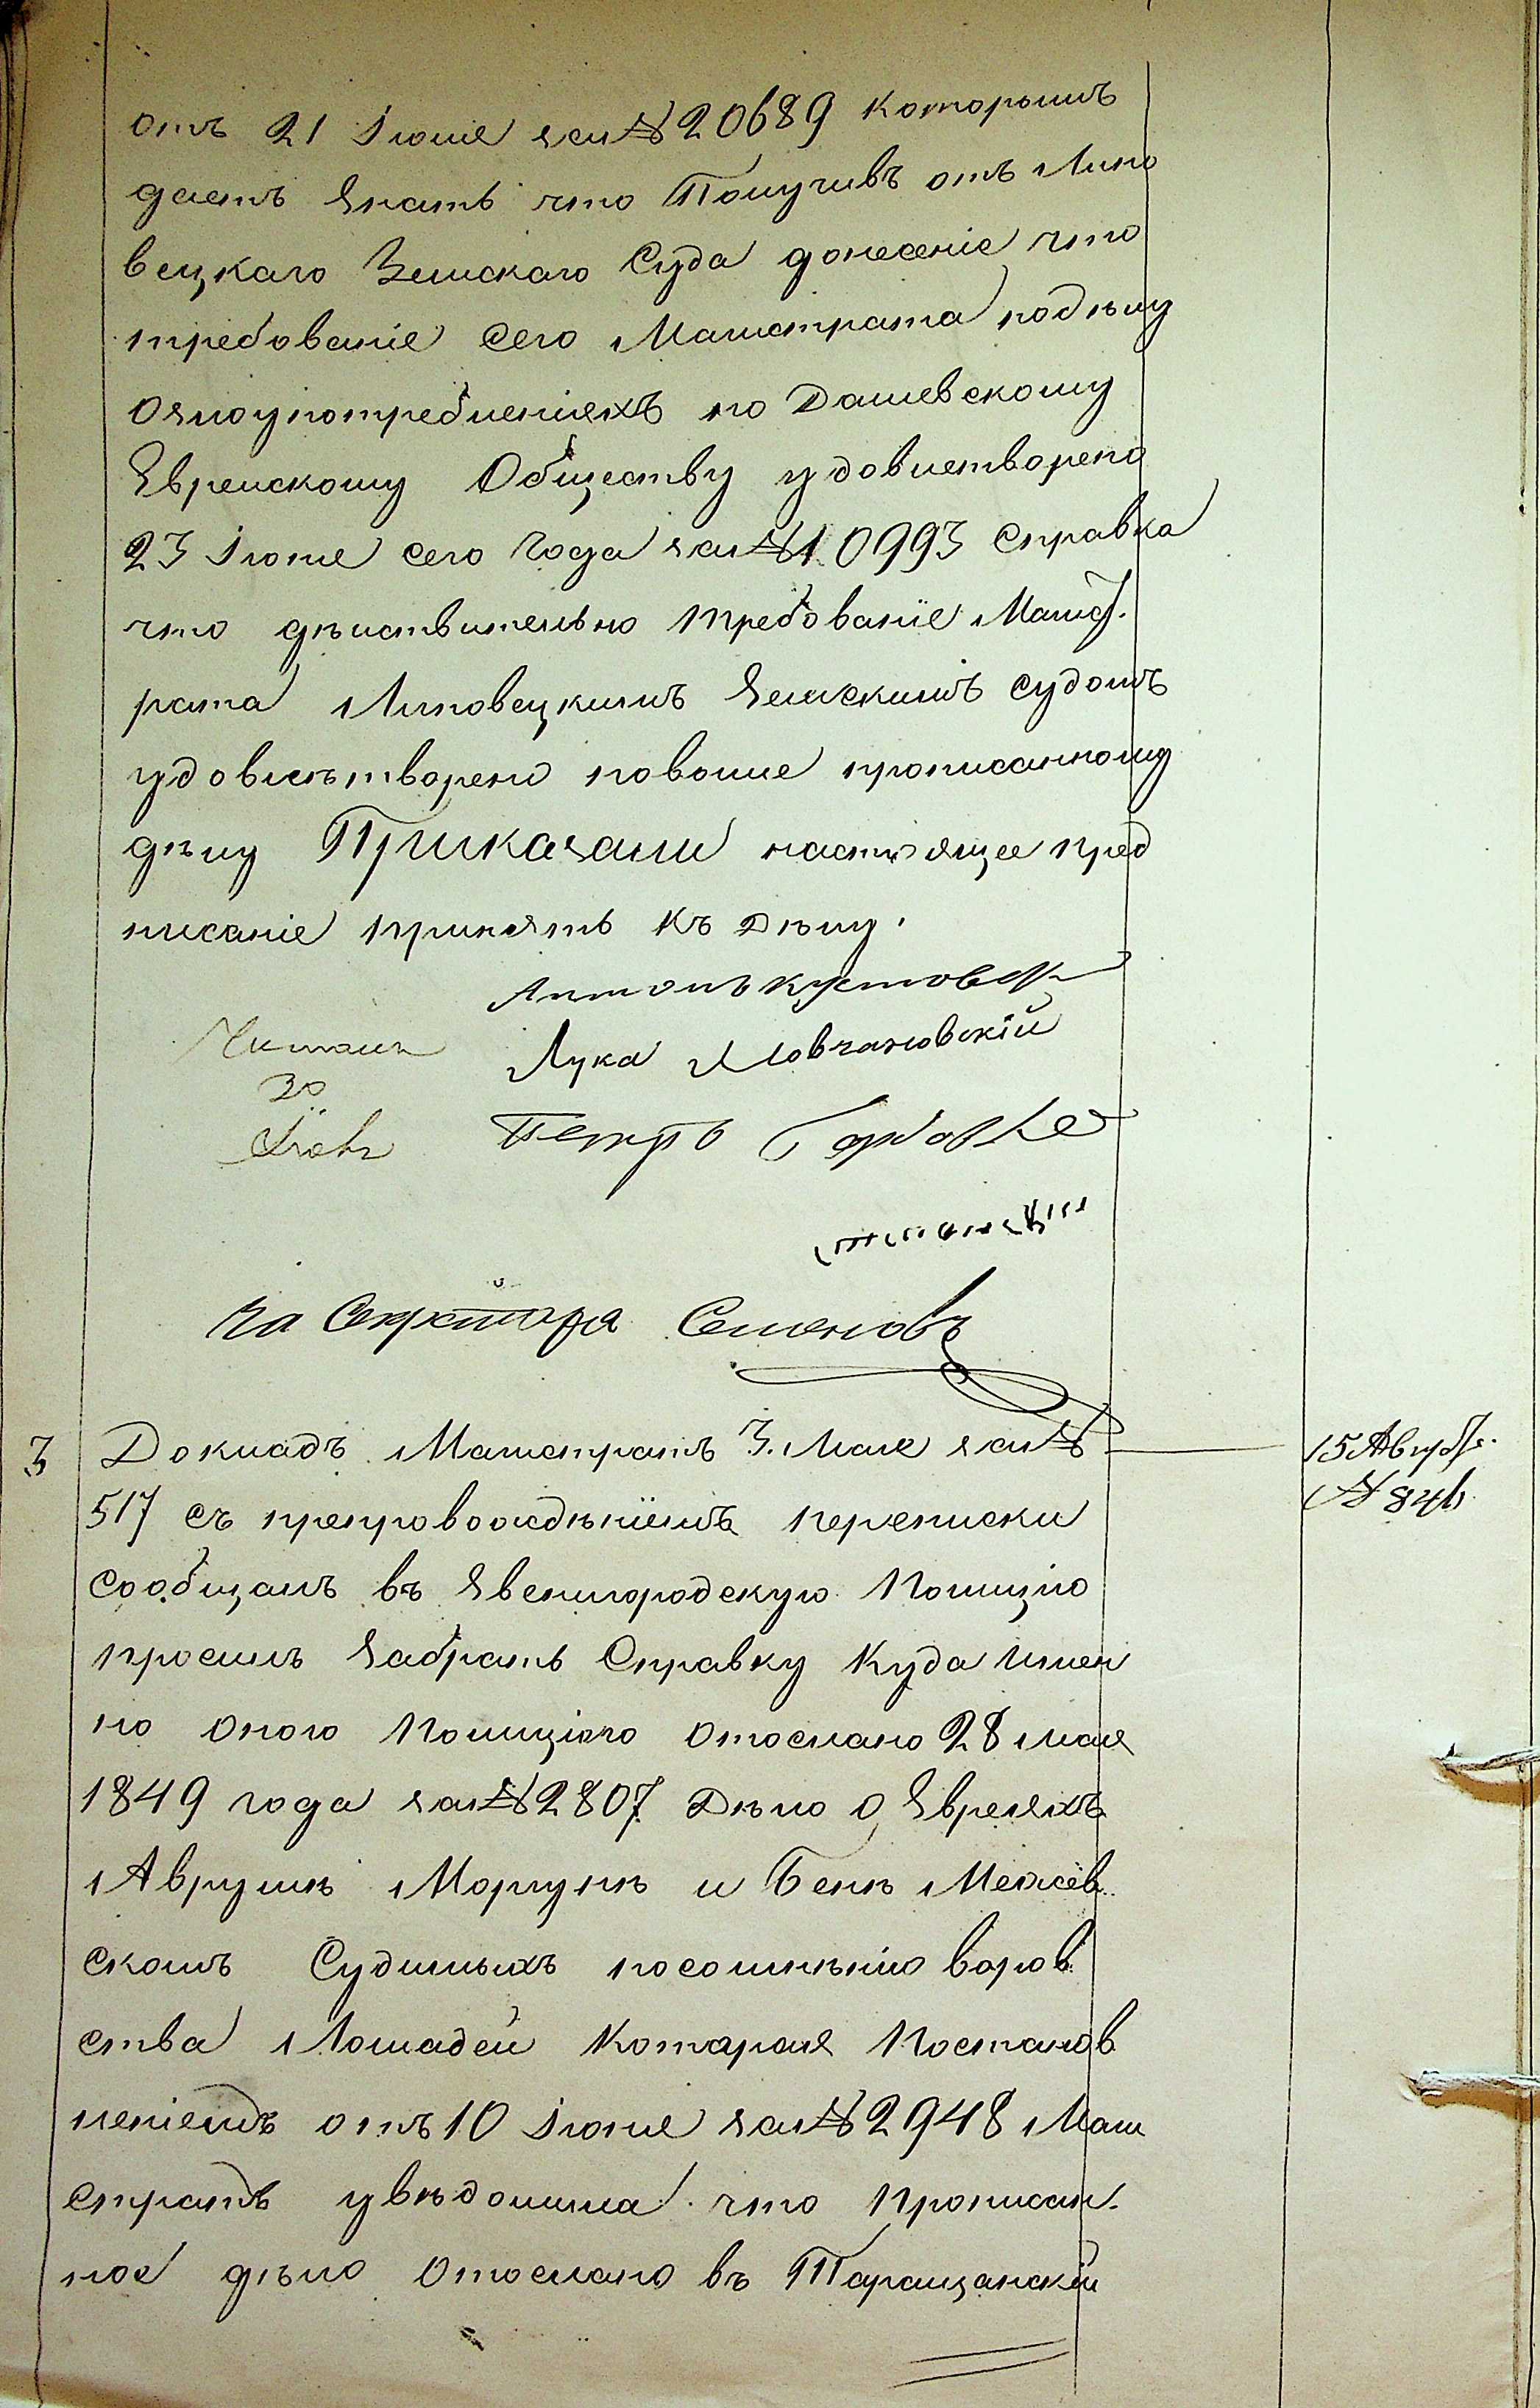 отъ 21 Іюня за № 20689 которымъ
даетъ знать что Получивъ отъ Липо
вецкаго Земскаго Суда донесеніе что
требованіе Сего Магистрата по дѣлу
о злоупотребленіяхъ по Дашевскому
Еврейскому Обществу удовлетворено
23 Іюня сего Года за № 10993 справка
что дѣиствительно требованіе Магист.
рата Липовецкимъ Земскимъ судомъ
удовлѣтворено по выше прописанному
дѣлу Приказали настоящее пред
писаніе принять къ Дѣлу.
Лука Мовчановскій
Читалъ
Петръ
за Секретаря Семеновъ
3 Докладъ Магистратъ 3. Мая за №
15 Август.
№ 846
517 съ препровождѣніемъ переписки
сообщалъ въ Звенигородскую Полицію
просилъ забрать Справку Куда имен
но оною Полиціею отослано 28 мая
1849 года за № 2807 Дѣло о Евреяхъ
Аврумѣ Моргунѣ и Бенѣ Межев
скомъ Судимыхъ по сомнѣнію воров
ства Лошадей Которая Постанов
леніемъ отъ 10 Іюня за № 2948 Маги
стратъ увѣдомила что прописан.
ное дѣло Отослано въ Таращанскій